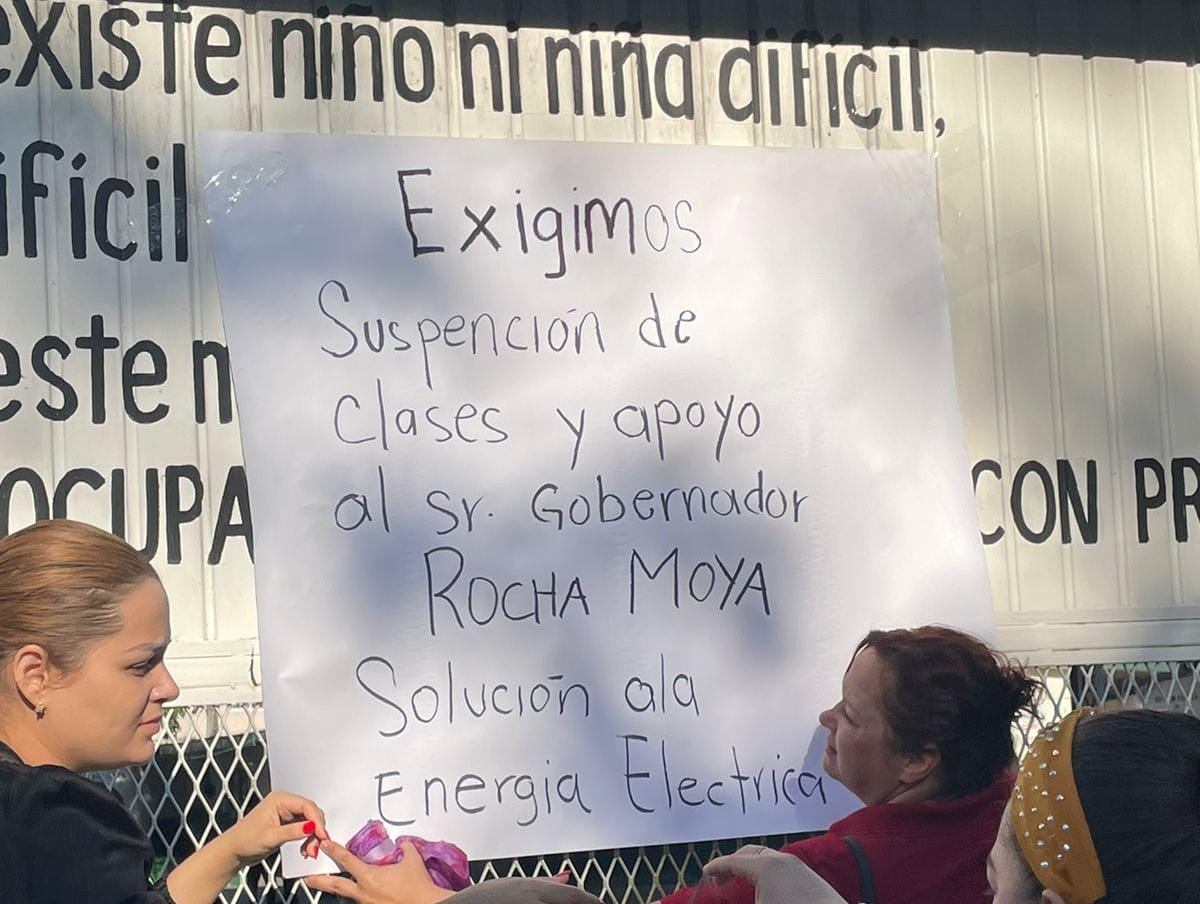 existe niño ni niña difícil,
difícil
este
Exigimos
Suspención de
clases y apoyo
al sr. Gobernador
ROCHA MOYA
Solución ala
Energia Electrica
CON